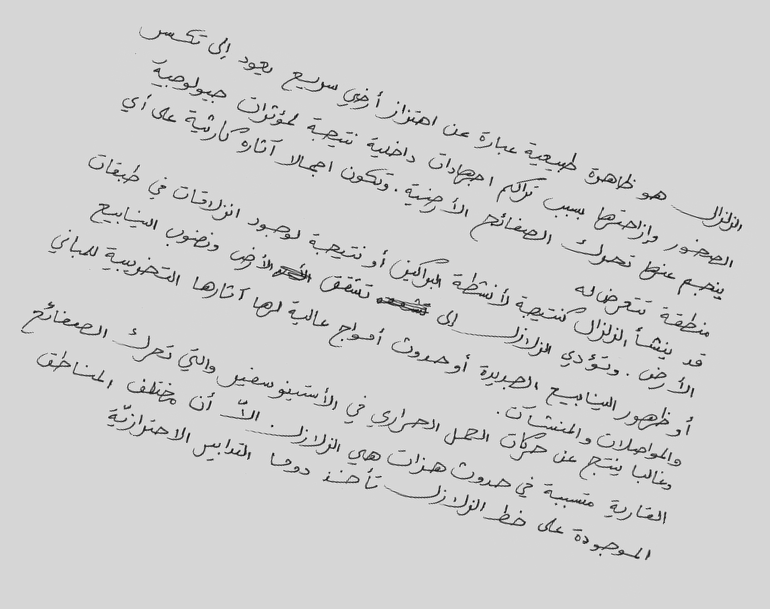 الزلزال هو ظاهرة طبيعية عبارة عن اهتزاز أرضي سريع يعود إلى تكسر
الصخور وإزاحتها بسبب تراكم اجهادات داخلية نتيجة لمؤثرات جيولوجية
ينجم عنها تحرك الصفائح الأرضية. وتكون اجمالا آثاره كارثية على أي
منطقة تتعرض له
قد ينشأ الزلزال كنتيجة لأنشطة البراكين أو نتيجة لوجود انزلاقات في طبقات
الأرض. وتؤدي الزلازل إلى تشقق الأرض ونضوب الينابيع
أو ظهور الينابيع الجديدة أو حدوث أمواج عالية لها آثارها التخريبية للمباني
والمواصلات والمنشآت.
وغالبا ينتج عن حركات الحمل الحراري في الأستينوسفير والتي تحرك الصفائح
القارية متسببة في حدوث هزات هي الزلازل. الاّ أن مختلف المناطق
الموجودة على خط الزلازل تأخذ دوما التدابير الاحترازيّة